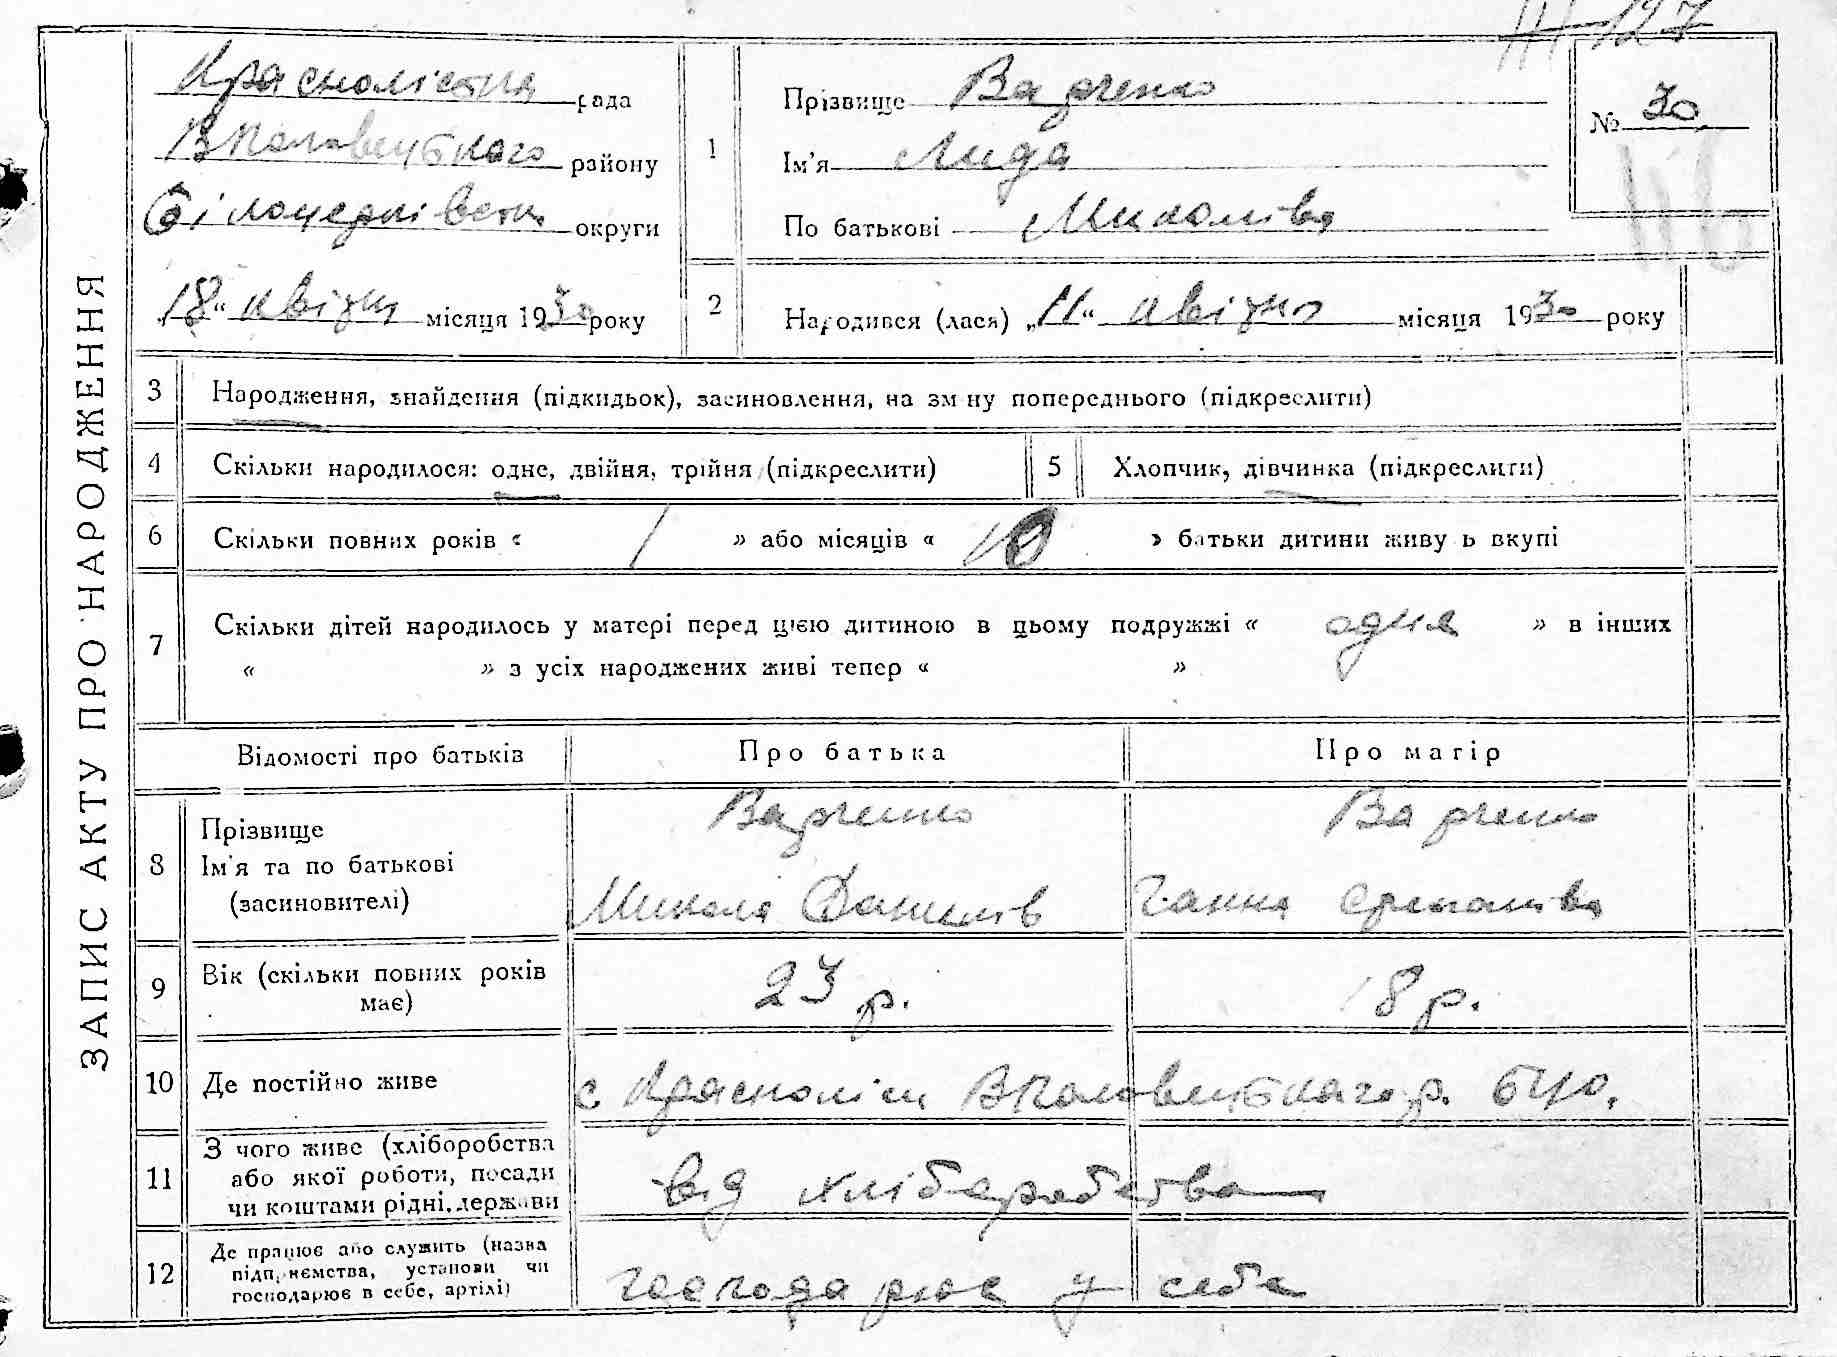 127
ЗАПИС АКТУ ПРО НАРОДЖЕННЯ
Краснолістка рада
ВПоловецького району
Білоцерківської округи
„18“ квітня місяця 1930 року
1
Прізвище Варченко
Ім’я Лида
По батькові Миколівна
№ 30
116
2
Народився (лася) „11“ квітня місяця 1930 року
3 Народження, знайдення (підкидьок), засиновлення, на зміну попереднього (підкреслити)
4 Скільки народилося: одне, двійня, трійня (підкреслити)
5 Хлопчик, дівчинка (підкреслити)
6 Скільки повних років « 1 » або місяців « 10 » батьки дитини живуть вкупі
7 Скільки дітей народилось у матері перед цією дитиною в цьому подружжі « одня » в інших
« » з усіх народжених живі тепер « »
Відомості про батьків Про батька Про матір
8 Прізвище Варченко Варченко
Ім’я та по батькові
(засиновителі) Микола Данилів Ганна
9 Вік (скільки повних років має) 23 р. 18 р.
10 Де постійно живе с ВПоловецького р. БЦО.
11 З чого живе (хліборобства
або якої роботи, посади
чи коштами рідні, держави від хліборобства
12 Де працює або служить (назва
підприємства, установи чи
господарює в себе, артілі) господарює у себе